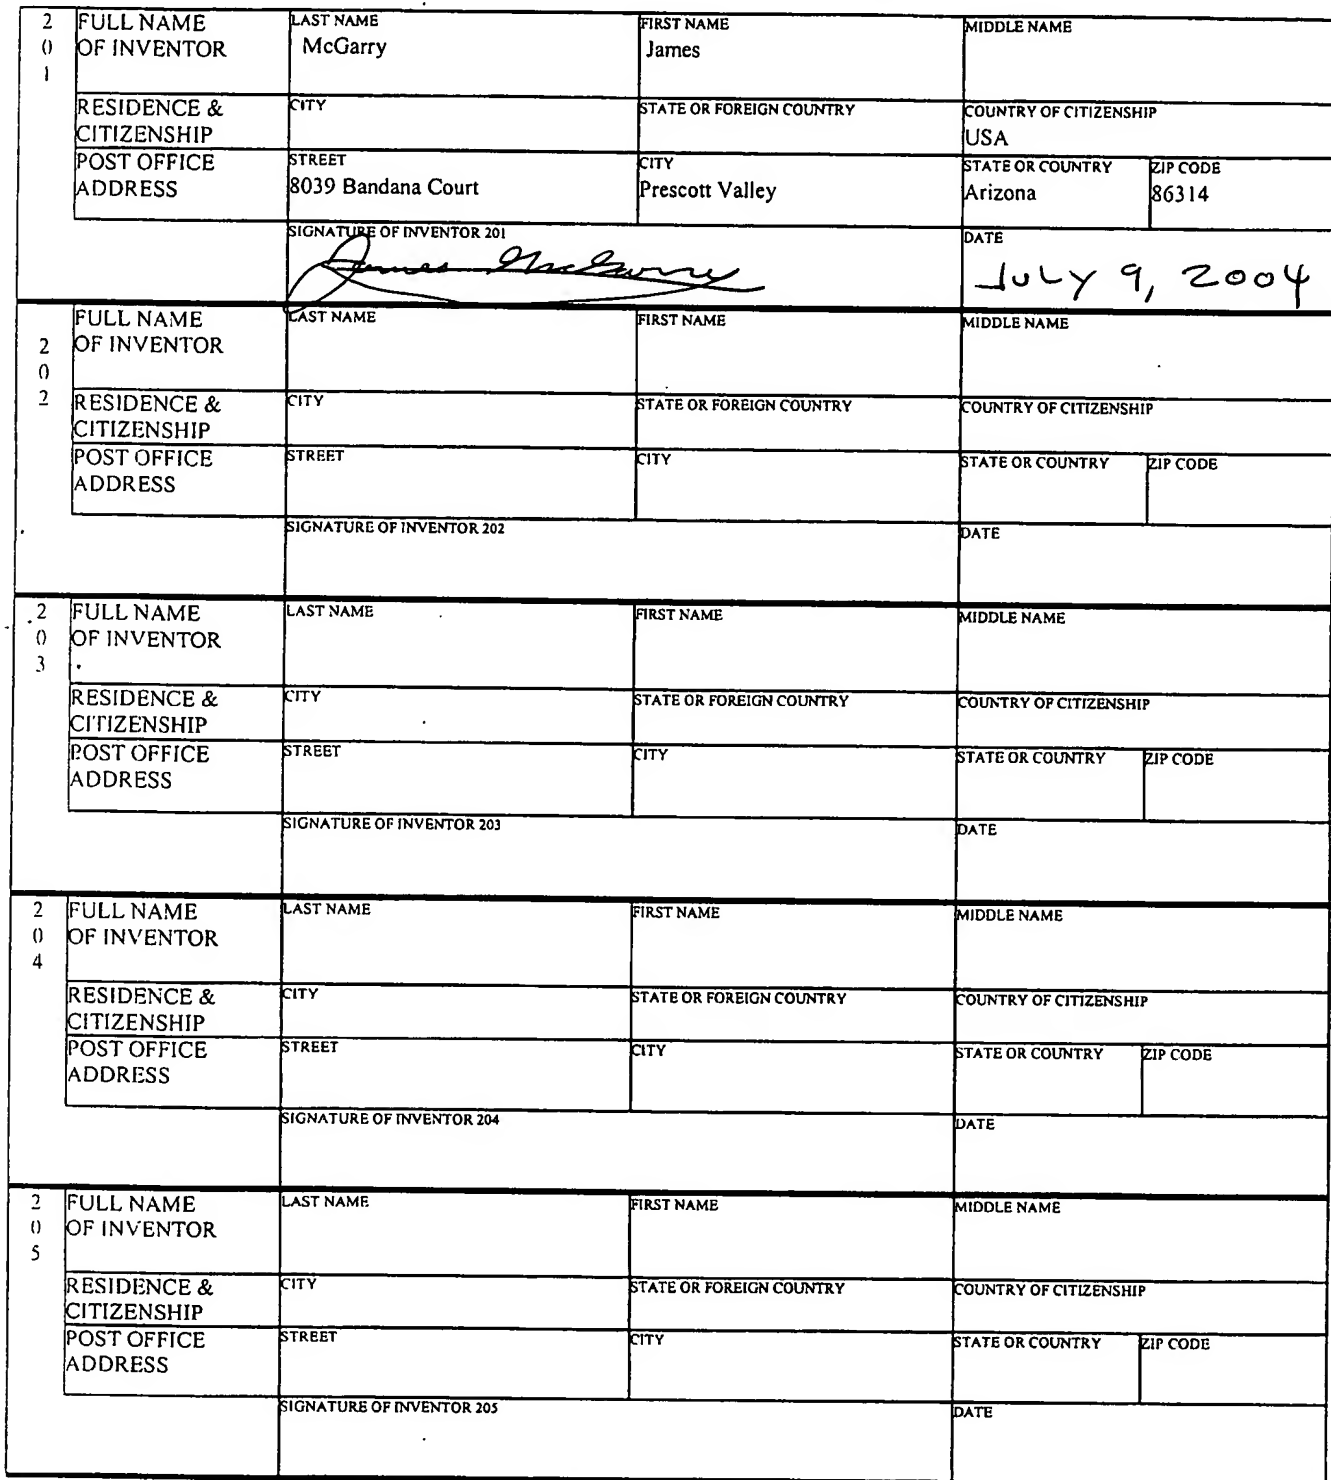 2 0 1
FULL NAME OF INVENTOR
LAST NAME
McGarry
FIRST NAME
James
MIDDLE NAME
RESIDENCE & CITIZENSHIP
CITY
STATE OR FOREIGN COUNTRY
COUNTRY OF CITIZENSHIP
USA
POST OFFICE ADDRESS
STREET
8039 Bandana Court
CITY
Prescott Valley
STATE OR COUNTRY
Arizona
ZIP CODE
86314
SIGNATURE OF INVENTOR 201
James McGarry
DATE
JULY 9, 2004
2 0 2
FULL NAME OF INVENTOR
LAST NAME
FIRST NAME
MIDDLE NAME
RESIDENCE & CITIZENSHIP
CITY
STATE OR FOREIGN COUNTRY
COUNTRY OF CITIZENSHIP
POST OFFICE ADDRESS
STREET
CITY
STATE OR COUNTRY
ZIP CODE
SIGNATURE OF INVENTOR 202
DATE
2 0 3
FULL NAME OF INVENTOR
LAST NAME
FIRST NAME
MIDDLE NAME
RESIDENCE & CITIZENSHIP
CITY
STATE OR FOREIGN COUNTRY
COUNTRY OF CITIZENSHIP
POST OFFICE ADDRESS
STREET
CITY
STATE OR COUNTRY
ZIP CODE
SIGNATURE OF INVENTOR 203
DATE
2 0 4
FULL NAME OF INVENTOR
LAST NAME
FIRST NAME
MIDDLE NAME
RESIDENCE & CITIZENSHIP
CITY
STATE OR FOREIGN COUNTRY
COUNTRY OF CITIZENSHIP
POST OFFICE ADDRESS
STREET
CITY
STATE OR COUNTRY
ZIP CODE
SIGNATURE OF INVENTOR 204
DATE
2 0 5
FULL NAME OF INVENTOR
LAST NAME
FIRST NAME
MIDDLE NAME
RESIDENCE & CITIZENSHIP
CITY
STATE OR FOREIGN COUNTRY
COUNTRY OF CITIZENSHIP
POST OFFICE ADDRESS
STREET
CITY
STATE OR COUNTRY
ZIP CODE
SIGNATURE OF INVENTOR 205
DATE